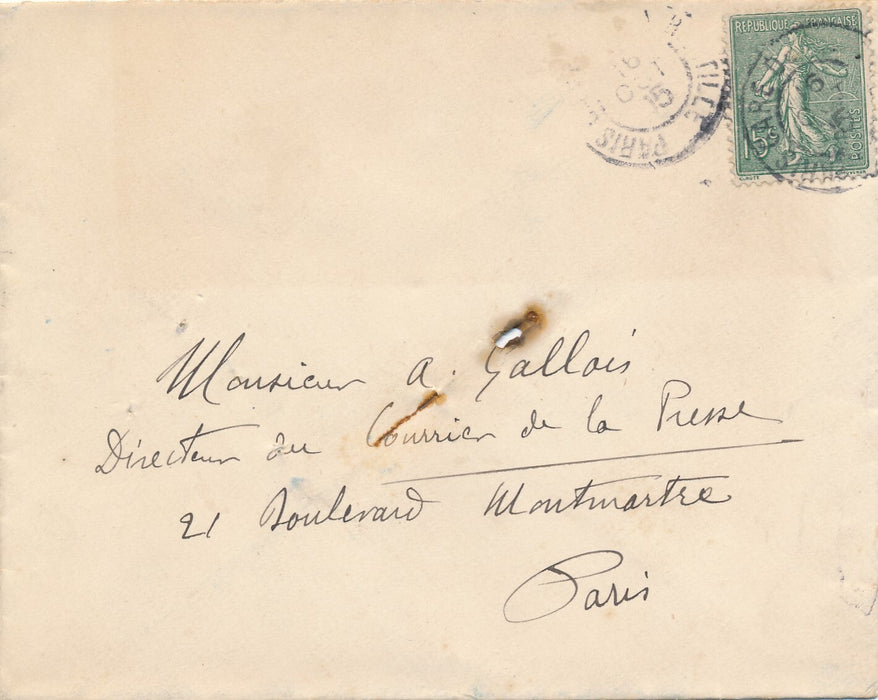 RÉPUBLIQUE FRANÇAISE
15c
POSTES
PARIS
16
OCT
05
Monsieur A. Gallois
Directeur du Courrier de la Presse
21 Boulevard Montmartre
Paris